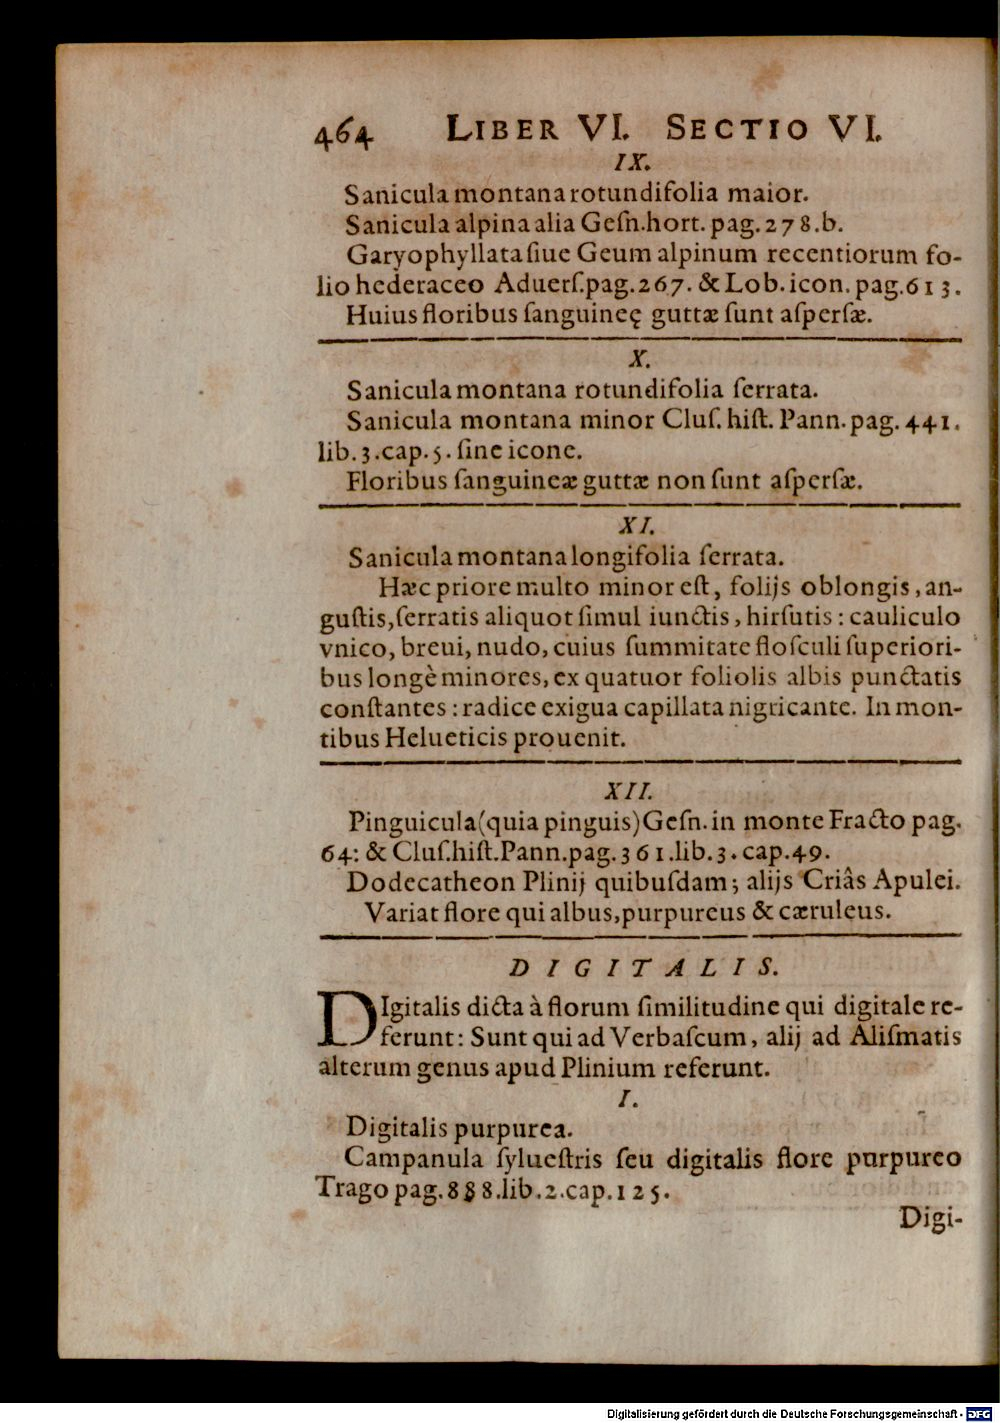 464 LIBER VI. SECTIO VI.
IX.
Sanicula montana rotundifolia maior.
Sanicula alpina alia Geſn. hort. pag. 278. b.
Garyophyllata ſiue Geum alpinum recentiorum fo-
lio hederaceo Aduerſ. pag. 267. & Lob. icon. pag. 613.
Huius floribus ſanguineę guttæ ſunt aſperſæ.
X.
Sanicula montana rotundifolia ſerrata.
Sanicula montana minor Cluſ. hiſt. Pann. pag. 441.
lib. 3. cap. 5. ſine icone.
Floribus ſanguineæ guttæ non ſunt aſperſæ.
XI.
Sanicula montana longifolia ſerrata.
Hæc priore multo minor eſt, folijs oblongis, an-
guſtis, ſerratis aliquot ſimul iunctis, hirſutis: cauliculo
vnico, breui, nudo, cuius ſummitate floſculi ſuperiori-
bus longè minores, ex quatuor foliolis albis punctatis
conſtantes: radice exigua capillata nigricante. In mon-
tibus Helueticis prouenit.
XII.
Pinguicula (quia pinguis) Geſn. in monte Fracto pag.
64: & Cluſ. hiſt. Pann. pag. 361. lib. 3. cap. 49.
Dodecatheon Plinij quibuſdam; alijs Criâs Apulei.
Variat flore qui albus, purpureus & cæruleus.
DIGITALIS.
DIgitalis dicta à florum ſimilitudine qui digitale re-
ferunt: Sunt qui ad Verbaſcum, alij ad Aliſmatis
alterum genus apud Plinium referunt.
I.
Digitalis purpurea.
Campanula ſylueſtris ſeu digitalis flore purpureo
Trago pag. 888. lib. 2. cap. 125.
Digi-
Digitalisierung gefördert durch die Deutsche Forschungsgemeinschaft - DFG